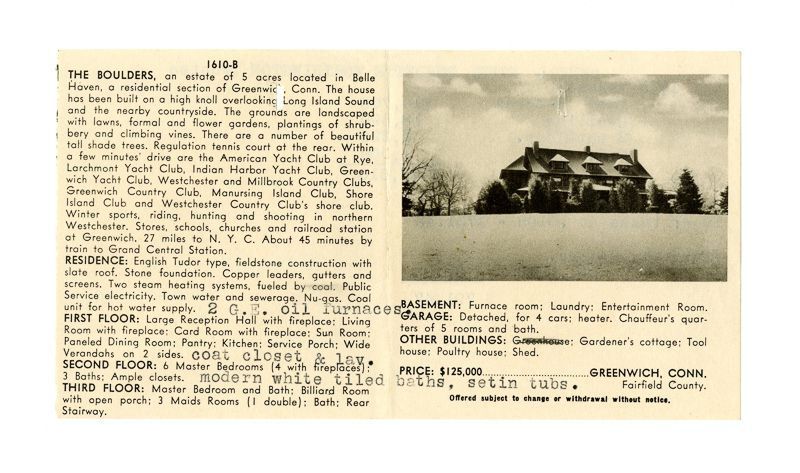 1610-B
THE BOULDERS, an estate of 5 acres located in Belle
Haven, a residential section of Greenwich, Conn. The house
has been built on a high knoll overlooking Long Island Sound
and the nearby countryside. The grounds are landscaped
with lawns, formal and flower gardens, plantings of shrub-
bery and climbing vines. There are a number of beautiful
tall shade trees. Regulation tennis court at the rear. Within
a few minutes' drive are the American Yacht Club at Rye,
Larchmont Yacht Club, Indian Harbor Yacht Club, Green-
wich Yacht Club, Westchester and Millbrook Country Clubs,
Greenwich Country Club, Manursing Island Club, Shore
Island Club and Westchester Country Club's shore club.
Winter sports, riding, hunting and shooting in northern
Westchester. Stores, schools, churches and railroad station
at Greenwich. 27 miles to N. Y. C. About 45 minutes by
train to Grand Central Station.
RESIDENCE: English Tudor type, fieldstone construction with
slate roof. Stone foundation. Copper leaders, gutters and
screens. Two steam heating systems, fueled by coal. Public
Service electricity. Town water and sewerage. Nu-gas. Coal
unit for hot water supply. 2 G.E. oil furnaces.
FIRST FLOOR: Large Reception Hall with fireplace; Living
Room with fireplace; Card Room with fireplace; Sun Room;
Paneled Dining Room; Pantry; Kitchen; Service Porch; Wide
Verandahs on 2 sides. coat closet & lav.
SECOND FLOOR: 6 Master Bedrooms (4 with fireplaces);
3 Baths; Ample closets. modern white tiled baths, setin tubs.
THIRD FLOOR: Master Bedroom and Bath; Billiard Room
with open porch; 3 Maids Rooms (1 double); Bath; Rear
Stairway.
BASEMENT: Furnace room; Laundry; Entertainment Room.
GARAGE: Detached, for 4 cars; heater. Chauffeur's quar-
ters of 5 rooms and bath.
OTHER BUILDINGS: Greenhouse; Gardener's cottage; Tool
house; Poultry house; Shed.
PRICE: $125,000..............................GREENWICH, CONN.
Fairfield County.
Offered subject to change or withdrawal without notice.